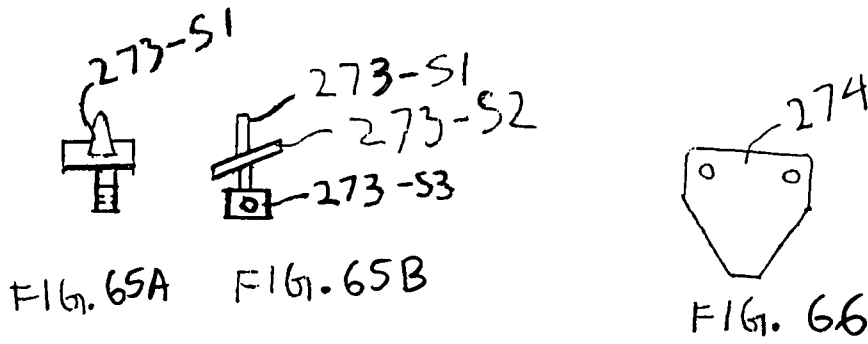 273-S1
273-S1
273-S2
273-S3
274
FIG. 65A
FIG. 65B
FIG. 66